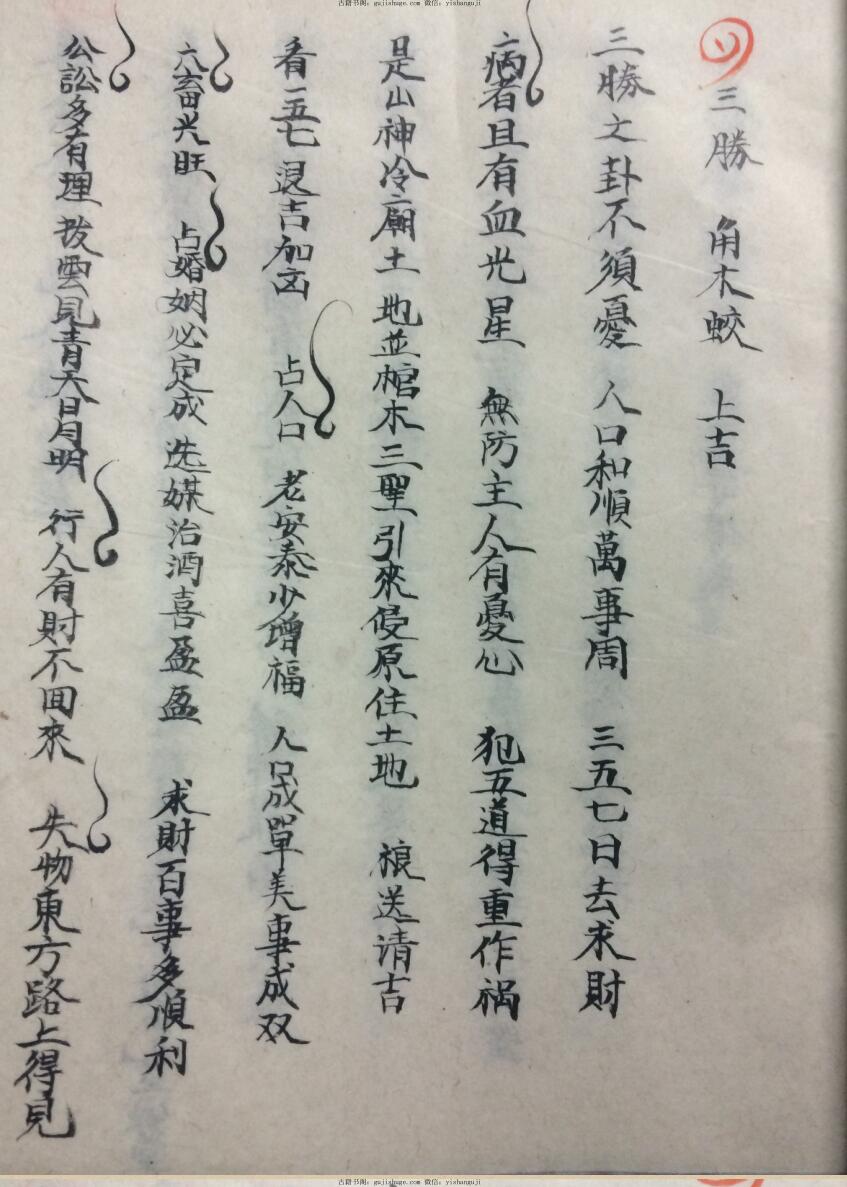 古籍书阁：gujishuge.com 微信：yishanguji
三勝 角木蛟 上吉
三勝之卦不須憂 人口和順萬事周 三五七日去求財
病者且有血光星 無防主人有憂心 犯五道得重作祸
是山神冷廟土地並棺木三聖引來侵原住土地 𥘵送请吉
看一五七退吉加凶 占人口 老安泰少增福 人口成單美事成双
六畜兴旺 占婚姻必定成 选媒治酒喜盈盈 求財百事多順利
公訟多有理 拨雲見青天日月明 行人有財不回來 失物東方路上得見
古籍书阁：gujishuge.com 微信：yishanguji